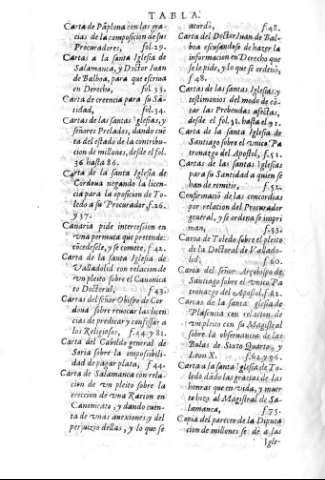 TABLA.
Carta de Pāplona con las gra-
cias de la composicion de sus
Procuradores, fol. 29.
Cartas a la santa Iglesia de
Salamanca, y Doctor Juan
de Balboa, para que escriua
en Derecho, fol. 33.
Carta de creencia para su Sā-
tidad, fol. 34.
Cartas de las santas Iglesias, y
señores Prelados, dando cuē
ta del estado de la contribu-
cion de millones, desde el fol.
36 hasta 86.
Carta de la santa Iglesia de
Cordoua negando la licen-
cia para la oposicion de To-
ledo a su Procurador, f. 26.
y 37.
Canaria pide intercession en
vna permuta que pretende:
cōcedesele, y se comete, f. 42.
Carta de la santa Iglesia de
Valladolid con relacion de
vn pleito sobre el Canonica
to Doctoral, f. 43.
Cartas del señor Obispo de Cor
doua sobre reuocar las licen
cias de predicar y confessar a
los Religiosos, f. 44. y 81.
Carta del Cabildo general de
Soria sobre la impossibili-
dad de pagar plata, f. 44.
Carta de Salamanca con rela-
cion de vn pleito sobre la
ereccion de vna Racion en
Canonicato, y dando cuen-
ta de vnas anexiones y del
perjuizio dellas, y lo que se
acordò, f. 48.
Carta del Doctor Juan de Bal-
boa escusandose de hazer la
informacion en Derecho que
se le pide, y lo que se ordenò,
f. 48.
Cartas de las santas Iglesias, y
testimonios del modo de co-
tar las Prebendas afectas,
desde el fol. 51. hasta el 92.
Carta de la santa Iglesia de
Santiago sobre el vnico Pa
tronazgo del Apostol, f. 51.
Cartas de la santa Iglesia
para su Santidad a quien se
han de remitir, f. 52.
Confirmaciō de las concordias
por relacion del Procurador
general, y se ordena se impri
man, f. 53.
Carta de Toledo sobre el pleito
de la Doctoral de Vallado-
lid, f. 60.
Carta del señor Arçobispo de
Santiago sobre el vnico Pa
tronazgo del Apostol, f. 61.
Cartas de la santa Iglesia de
Plasencia con relacion de
vn pleito con su Magistral
sobre la obseruancia de las
Bulas de Sixto Quarto, y
Leon X. f. 62. y 96.
Carta a la santa Iglesia de To-
ledo dādo las gracias de las
honras que en vida, y muer
te hizo al Magistral de Sa-
lamanca, f. 75.
Copia del parecer de la Diputa
cion de millones se dè a las
Igle-